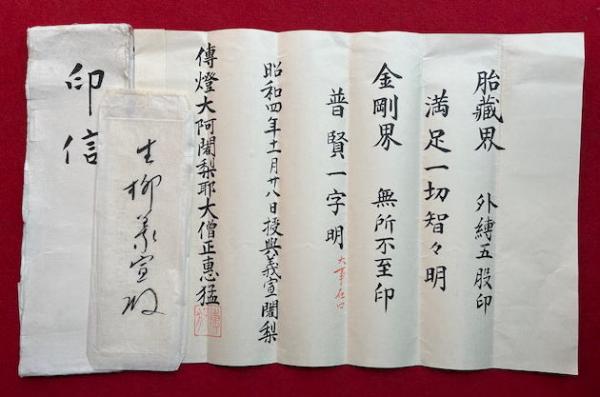 胎藏界 外縛五股印
満足一切智々明
金剛界 無所不至印
普賢一字明 大事在口
昭和四年十一月廿八日授與義宣闍梨
傳燈大阿闍梨耶大僧正惠猛
生柳義宣
印信